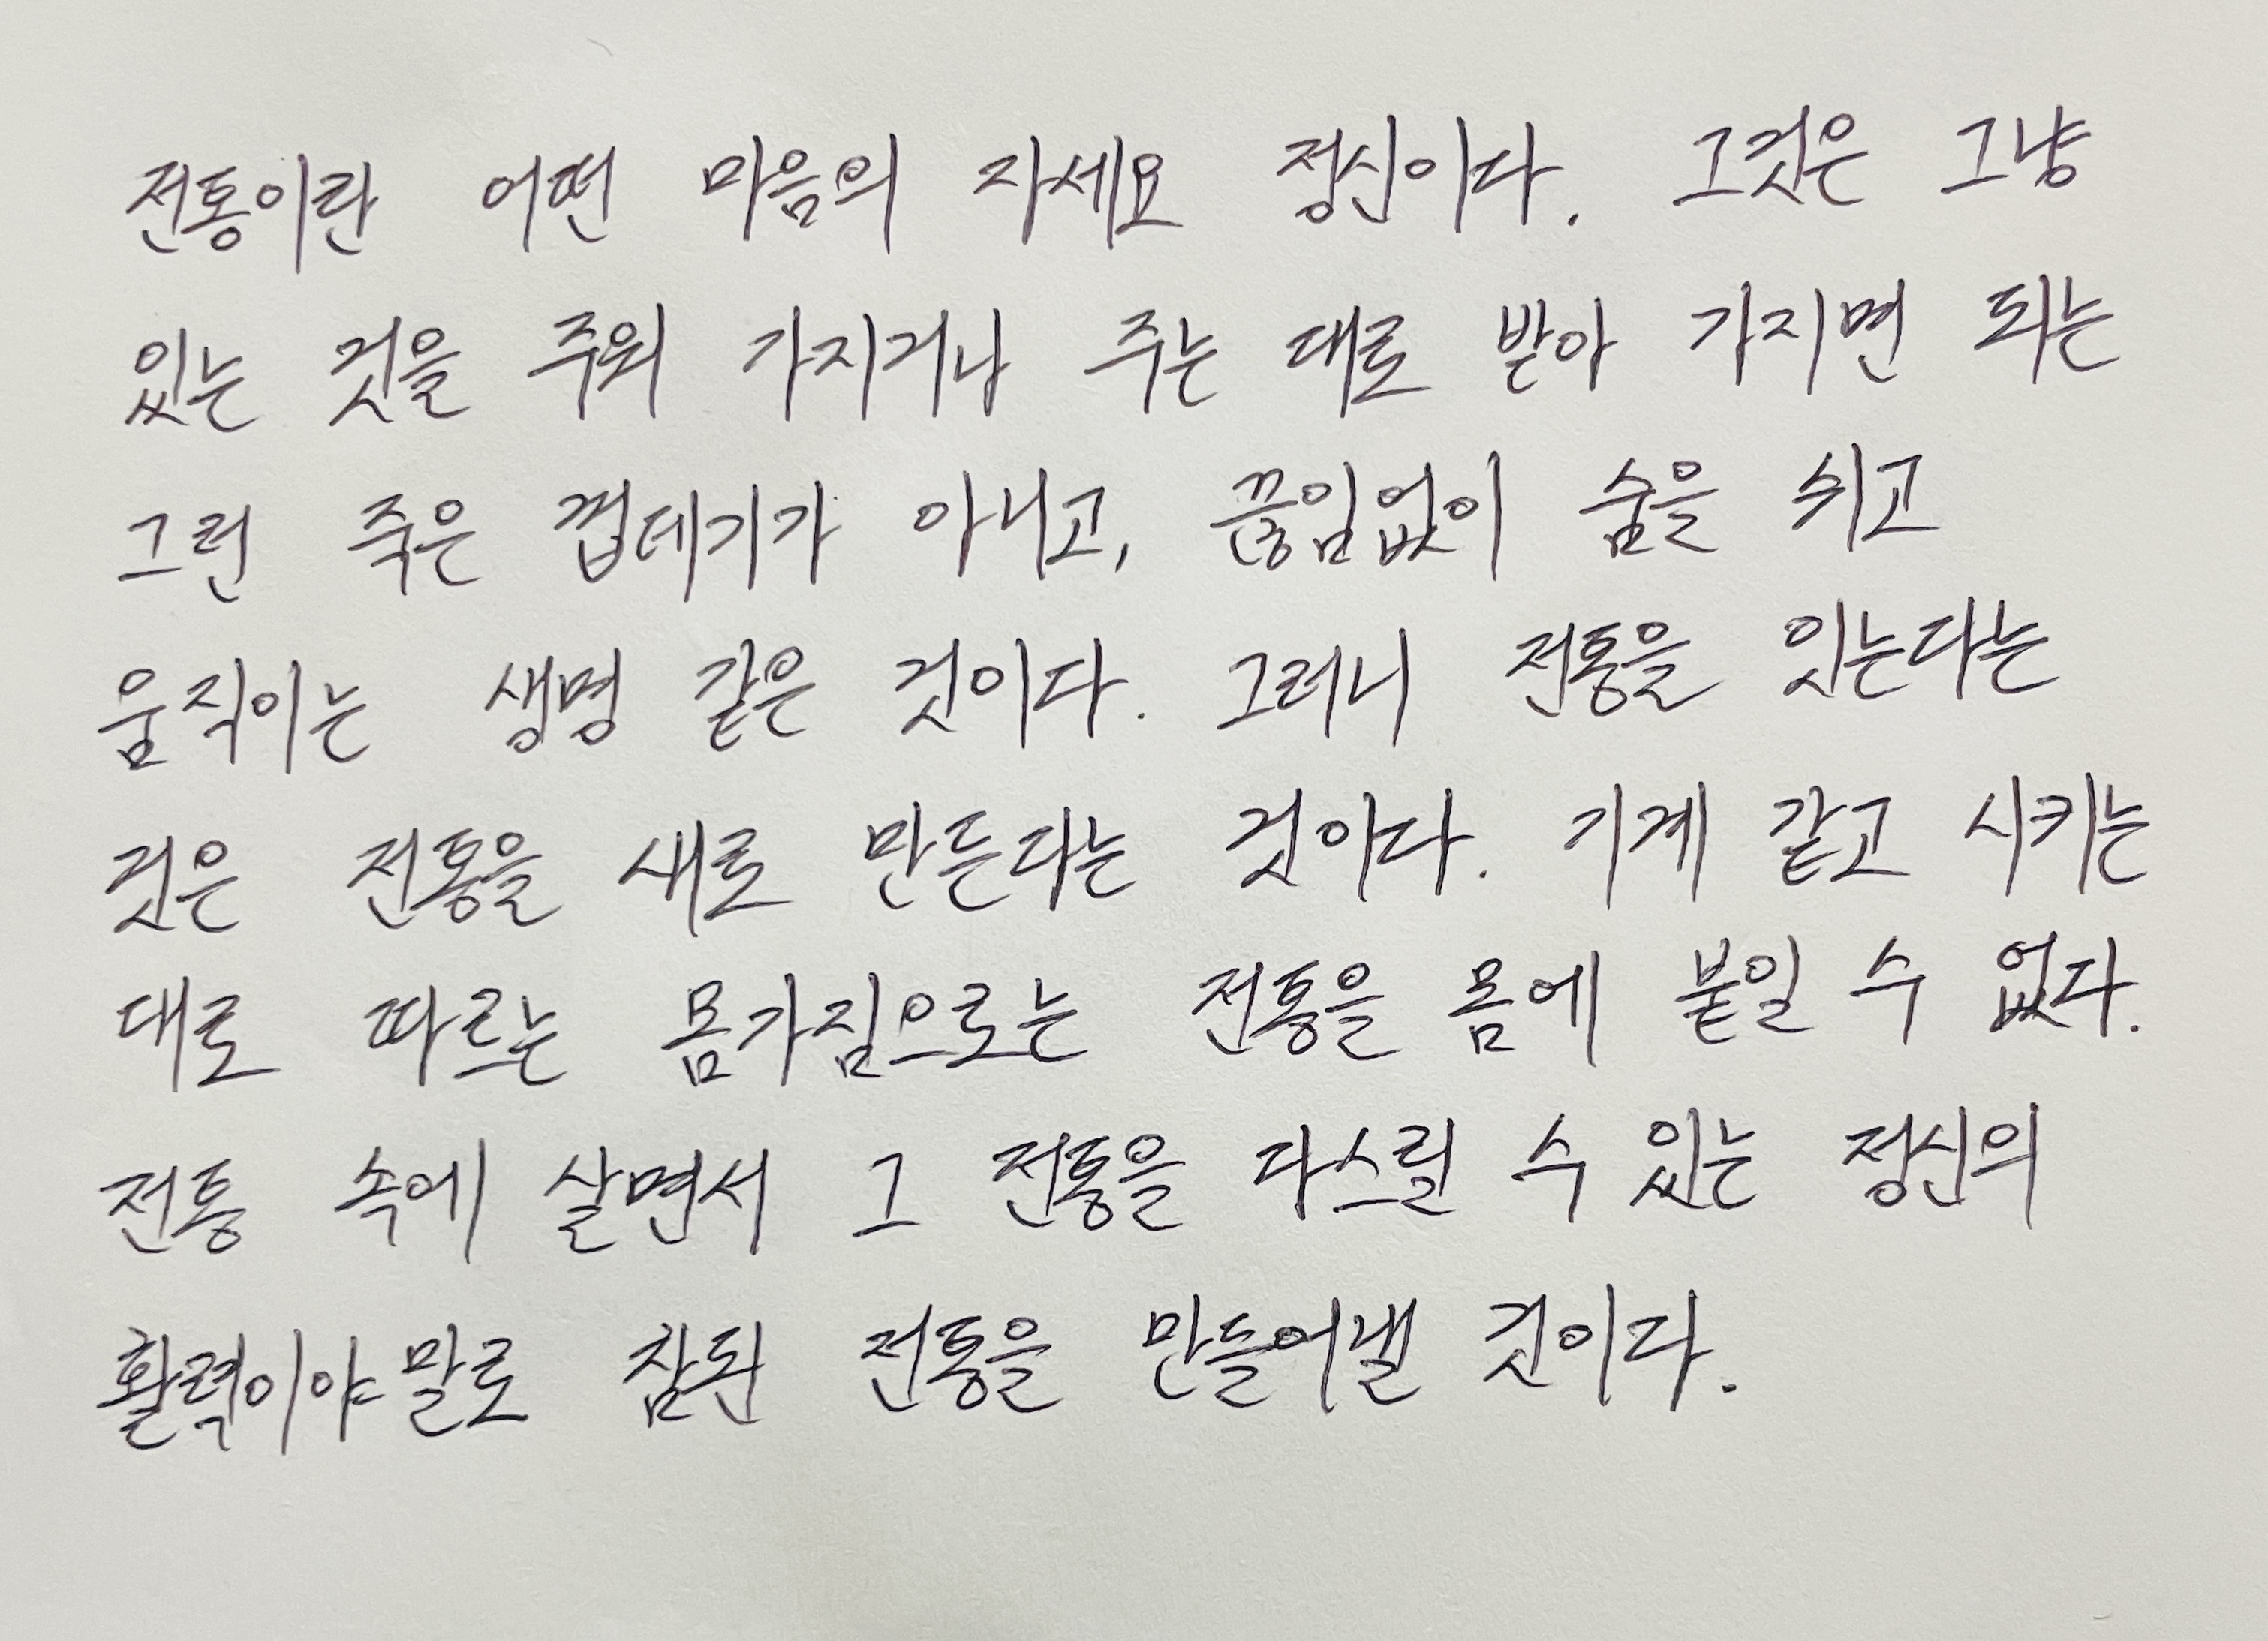 전통이란 어떤 마음의 자세요 정신이다. 그것은 그냥
있는 것을 주워 가지거나 주는 대로 받아 가지면 되는
그런 죽은 껍데기가 아니고, 끊임없이 숨을 쉬고
움직이는 생명 같은 것이다. 그러니 전통을 있는다는
것은 전통을 새로 만든다는 것이다. 기계 같고 시키는
대로 따르는 몸가짐으로는 전통을 몸에 붙일 수 없다.
전통 속에 살면서 그 전통을 다스릴 수 있는 정신의
활력이야말로 참된 전통을 만들어낼 것이다.